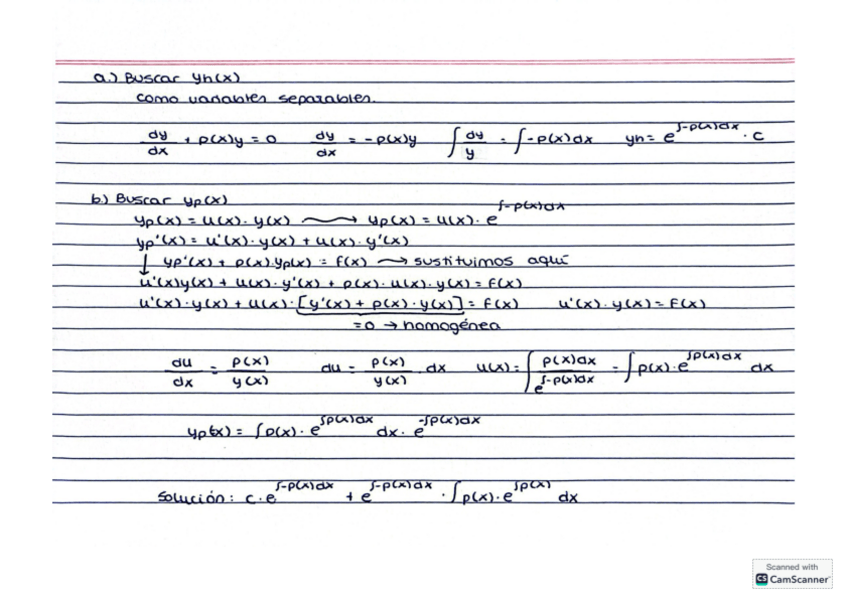 a.) Buscar yh(x)
como variables separables.
dy/dx + p(x)y = 0    dy/dx = -p(x)y    ∫ dy/y = ∫ -p(x)dx    yh = e^∫-p(x)dx · c
b.) Buscar yp(x)
yp(x) = u(x) · y(x) → yp(x) = u(x) · e^∫-p(x)dx
yp'(x) = u'(x) · y(x) + u(x) · y'(x)
↓ yp'(x) + p(x).yp(x) = f(x) → sustituimos aquí
u'(x)y(x) + u(x) · y'(x) + p(x) · u(x) · y(x) = f(x)
u'(x) · y(x) + u(x) · [y'(x) + p(x) · y(x)] = f(x)    u'(x) · y(x) = f(x)
=0 → homogénea
du/dx = p(x)/y(x)    du = p(x)/y(x) · dx    u(x) = ∫ p(x)dx/e^∫-p(x)dx = ∫ p(x) · e^∫p(x)dx dx
yp(x) = ∫p(x) · e^∫p(x)dx dx · e^-∫p(x)dx
Solución: c · e^∫-p(x)dx + e^∫-p(x)dx · ∫p(x) · e^∫p(x) dx
Scanned with
CS CamScanner